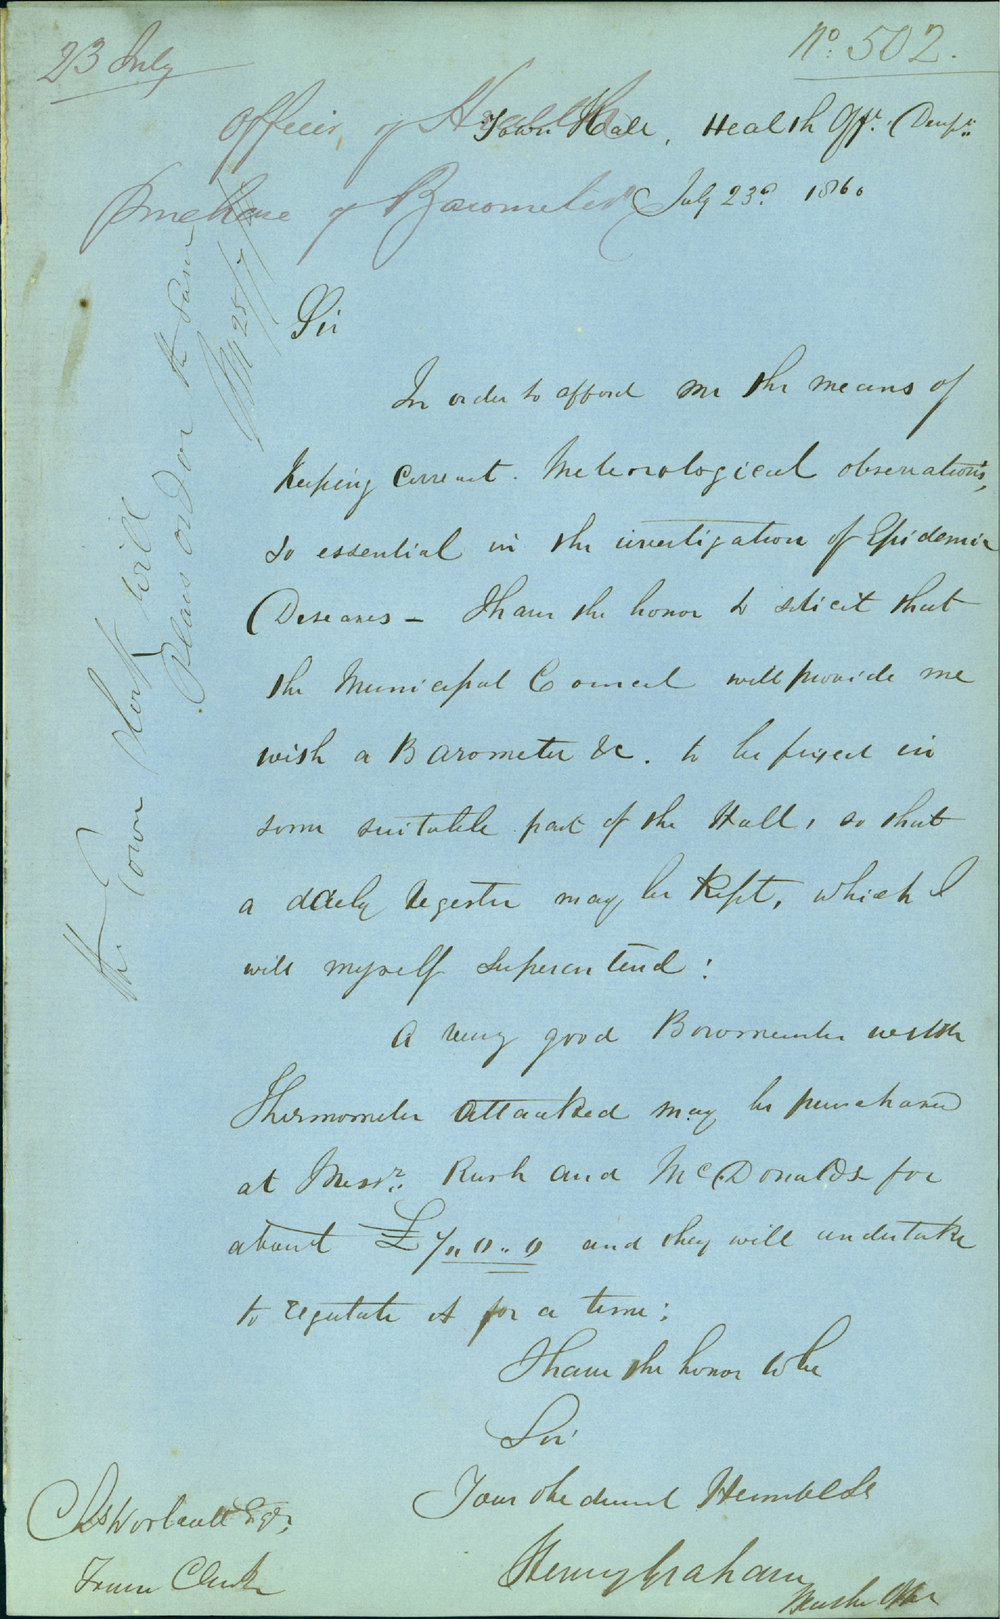 23 July
No. 502.
Officer of Health
Town Hall, Health Offr. Deupt.
Purchase of Barometer
July 23d. 1860
Sir
In order to afford me the means of
Keeping Current Meteorological observations,
so essential in the investigation of Epidemic
Diseases – I have the honor to solicit that
the Municipal Council will provide me
with a Barometer &c. to be fixed in
some suitable part of the Hall, so that
a daily register may be kept, which I
will myself superintend:
A very good Barometer with
Thermometer attached may be purchased
at Messrs. Rush and McDonalds for
about £7,, 0,, 0 and they will undertake
to regulate it for a time:
I have the honor to be
Sir
Your obedient Humble St
Henry Graham
Health Offr
Town Clerk
The Town Clerk will
Please order the same
25/7/60